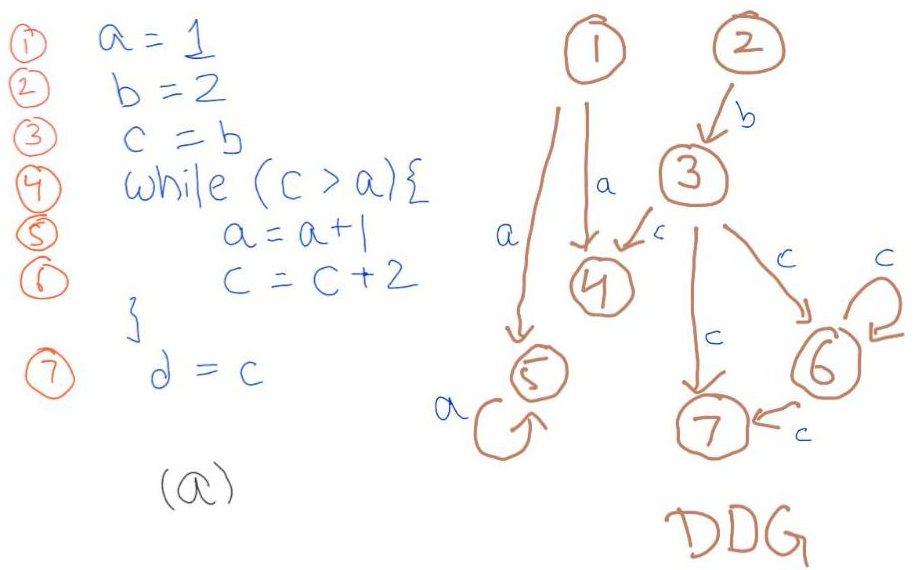 ① a = 1
② b = 2
③ c = b
④ while (c > a){
⑤ a = a+1
⑥ c = c + 2
}
⑦ d = c
(a)
1
2
b
3
a
a
c
4
c
c
c
5
6
a
c
7
c
DDG